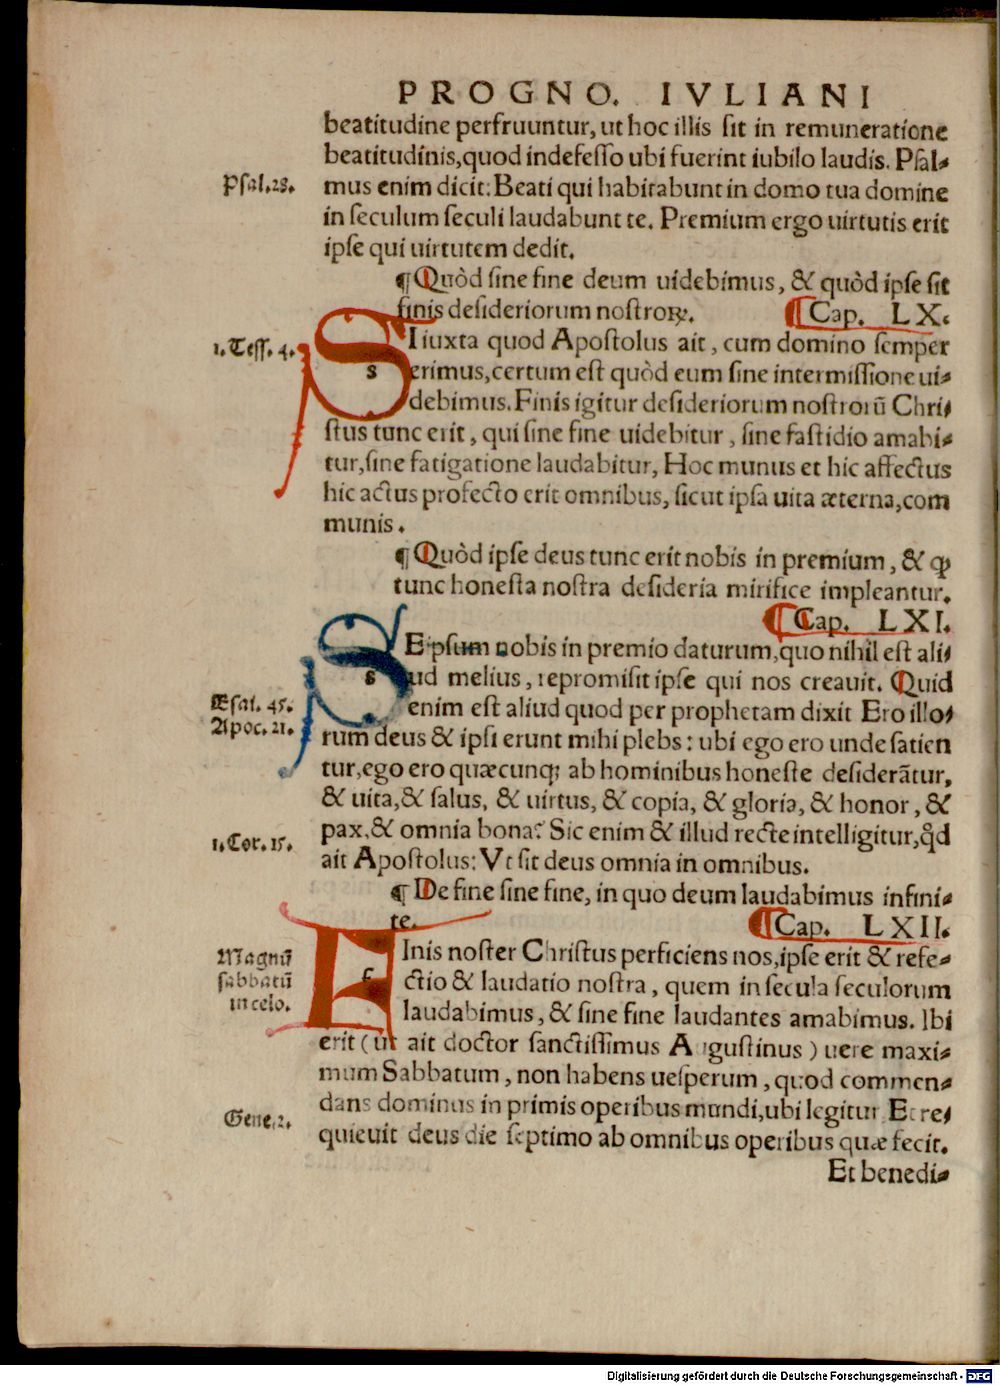 PROGNO. IVLIANI
beatitudine perfruuntur, ut hoc illis sit in remuneratione
beatitudinis, quod indefesso ubi fuerint iubilo laudis. Psal-
Psal.28.
mus enim dicit: Beati qui habitabunt in domo tua domine
in seculum seculi laudabunt te. Premium ergo uirtutis erit
ipse qui uirtutem dedit.
¶ Quòd sine fine deum uidebimus, & quòd ipse sit
finis desideriorum nostroꝝ. ¶ Cap. LX.
1. Tess. 4.
SI iuxta quod Apostolus ait, cum domino semper
s erimus, certum est quòd eum sine intermissione ui-
debimus. Finis igitur desideriorum nostrorū Chri-
stus tunc erit, qui sine fine uidebitur, sine fastidio amabi-
tur, sine fatigatione laudabitur, Hoc munus et hic affectus
hic actus profecto erit omnibus, sicut ipsa uita æterna, com
munis.
¶ Quòd ipse deus tunc erit nobis in premium, & ꝙ
tunc honesta nostra desideria mirifice impleantur.
¶ Cap. LXI.
SE ipsum nobis in premio daturum, quo nihil est ali-
s ud melius, repromisit ipse qui nos creauit. Quid
Esai. 45.
enim est aliud quod per prophetam dixit Ero illo-
Apoc. 21.
rum deus & ipsi erunt mihi plebs: ubi ego ero unde satien
tur, ego ero quæcunqꝫ ab hominibus honeste desiderātur,
& uita, & salus, & uirtus, & copia, & gloria, & honor, &
pax, & omnia bona? Sic enim & illud recte intelligitur, qd̓
1. Cor. 15.
ait Apostolus: Vt sit deus omnia in omnibus.
¶ De fine sine fine, in quo deum laudabimus infini-
te. ¶ Cap. LXII.
FInis noster Christus perficiens nos, ipse erit & refe-
Magnū
f ctio & laudatio nostra, quem in secula seculorum
sabbatū
laudabimus, & sine fine laudantes amabimus. Ibi
in celo.
erit (ut ait doctor sanctissimus Augustinus) uere maxi-
mum Sabbatum, non habens uesperum, quod commen-
dans dominus in primis operibus mundi, ubi legitur Et re-
Gene. 2.
quieuit deus die septimo ab omnibus operibus quæ fecit.
Et benedi-
Digitalisierung gefördert durch die Deutsche Forschungsgemeinschaft - DFG